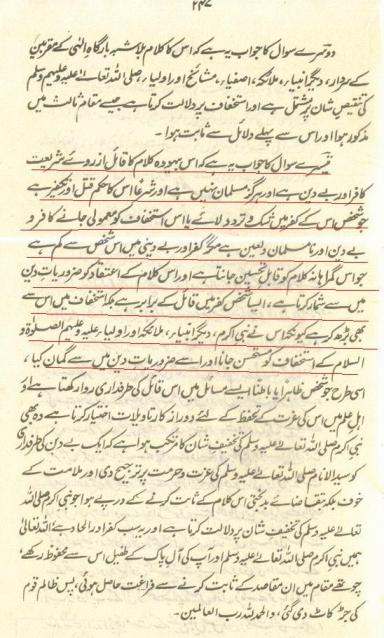 ۲۴۷
دوسرے سوال کا جواب یہ ہے کہ اس کا کلام بلاشبہ بارگاہِ الٰہی کے مقربین
کے سردار، دیگر انبیاء، ملائکہ، اصفیاء، مشائخ اور اولیاء صلی اللہ تعالیٰ علیہ وعلیہم وسلم
کی تنقیصِ شان پر مشتمل ہے اور استخفاف پر دلالت کرتا ہے جیسے مقام ثالث میں
مذکور ہوا اور اس سے پہلے دلائل سے ثابت ہوا۔
تیسرے سوال کا جواب یہ ہے کہ اس بیہودہ کلام کا قائل ازروئے شریعت
کافر اور بے دین ہے اور ہرگز مسلمان نہیں ہے اور شرعاً اس کا حکم قتل اور تکفیر ہے
جو شخص اس کے کفر میں شک و تردد لائے یا اس استخفاف کو معمولی جانے کافر و
بے دین اور نامسلمان و لعین ہے مگر کفر اور بے دینی میں اس شخص سے کم ہے
جو اس گمراہانہ کلام کو قابلِ تحسین جانتا ہے اور اس کلام کے اعتقاد کو ضروریاتِ دین
میں سے شمار کرتا ہے، ایسا شخص کفر میں قائل کے برابر ہے بلکہ استخفاف میں اس سے
بھی بڑھ کر ہے کیونکہ اس نے نبی اکرم، دیگر انبیاء، ملائکہ اور اولیاء علیہ وعلیہم الصلوٰۃ و
السلام کے استخفاف کو مستحسن جانا اور اسے ضروریاتِ دین میں سے گمان کیا،
اسی طرح جو شخص ظاہراً یا باطناً ایسے مسائل میں اس قائل کی طرفداری روا رکھتا ہے اور
اہلِ علم میں اس کی عزت کے تحفظ کے لئے دور از کار تاویلات اختیار کرتا ہے وہ بھی
نبی اکرم صلی اللہ تعالیٰ علیہ وسلم کی تخفیفِ شان کا مرتکب ہوا ہے کہ ایک بے دین کی طرفداری
کو سید الانام صلی اللہ تعالیٰ علیہ وسلم کی عزت و حرمت پر ترجیح دی اور ملامت کے
خوف بلکہ بتقاضائے بدبختی اس کلام کے ثابت کرنے کے درپے ہوا جو نبی اکرم صلی اللہ
تعالیٰ علیہ وسلم کی تخفیفِ شان پر دلالت کرتا ہے اور یہ سب کفر اور الحاد ہے اللہ تعالیٰ
ہمیں نبی اکرم صلی اللہ تعالیٰ علیہ وسلم اور آپ کی آلِ پاک کے طفیل اس سے محفوظ رکھے،
چوتھے مقام میں ان مقاصد کے ثابت کرنے سے فراغت حاصل ہوئی، پس ظالم قوم
کی جڑ کاٹ دی گئی، والحمد للہ رب العالمین۔